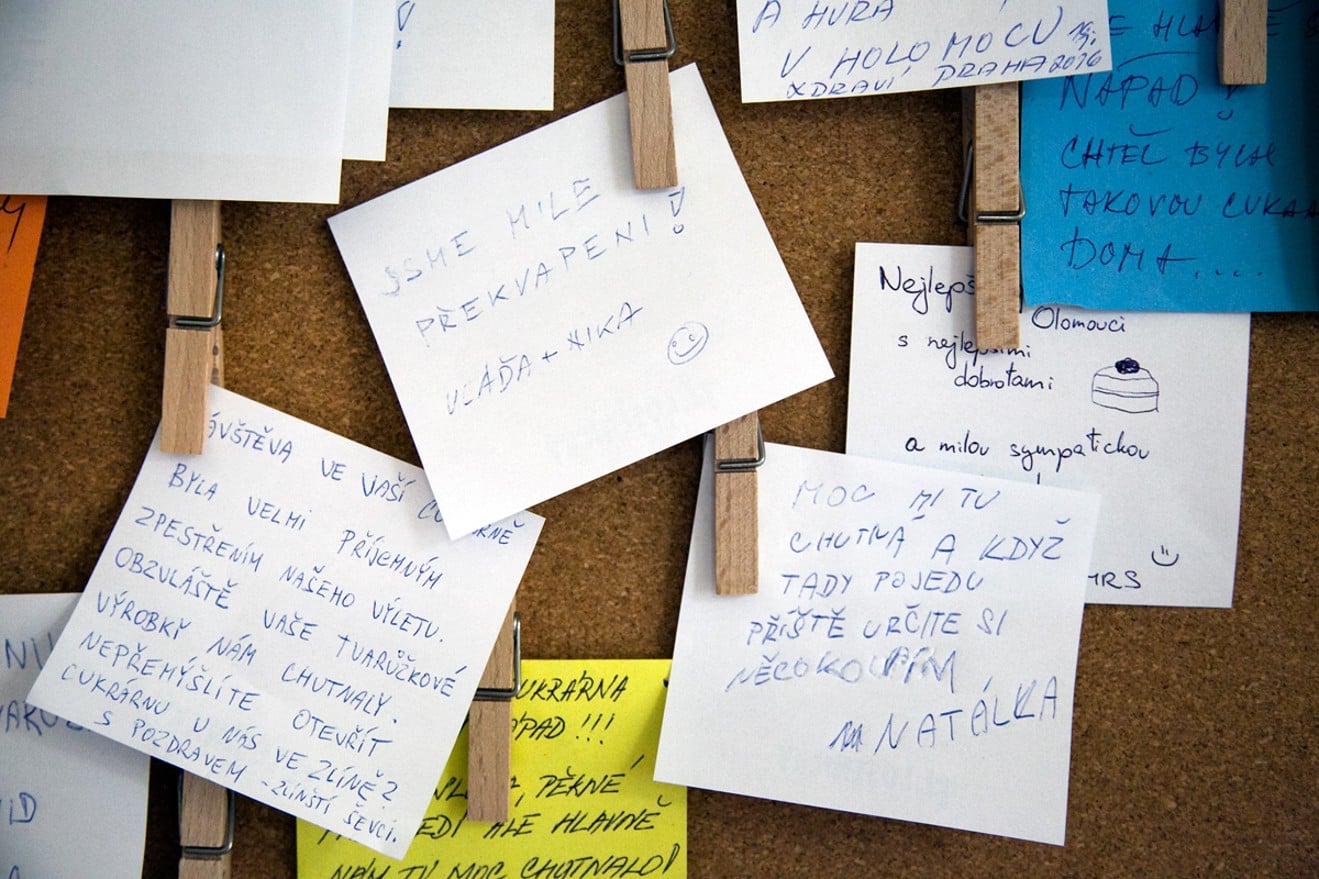 !
A HURÁ
V HOLOMOCU
ZDRAVÍ PRAHA 2016
E HLAVNĚ
NÁPAD!
CHTĚL BYCH
TAKOVOU CUKR
DOMA....
JSME MILE
PŘEKVAPENI!
VLÁĎA + NIKA
Nejlepš
Olomouci
s nejlepšími
dobrotami
a milou sympatickou
MRS
ÁVŠTĚVA VE VAŠÍ CU RNĚ
BYLA VELMI PŘÍJEMNÝM
ZPESTŘENÍM NAŠEHO VÝLETU.
OBZVLÁŠTĚ VAŠE TVARŮŽKOVÉ
VÝROBKY NÁM CHUTNALY.
NEPŘEMÝŠLÍTE OTEVŘÍT
CUKRÁRNU U NÁS VE ZLÍNĚ?
S POZDRAVEM - ZLÍNŠTÍ ŠEVCI.
MOC MI TU
CHUTNÁ A KDYŽ
TADY POJEDU
PŘÍŠTĚ URČITE SI
NĚCOKOUPÍM
NATÁLKA
UKRÁRNA
PAD!!!
PĚKNÉ
EDÍ ALE HLAVNĚ
NÁM TU MOC CHUTNALO!